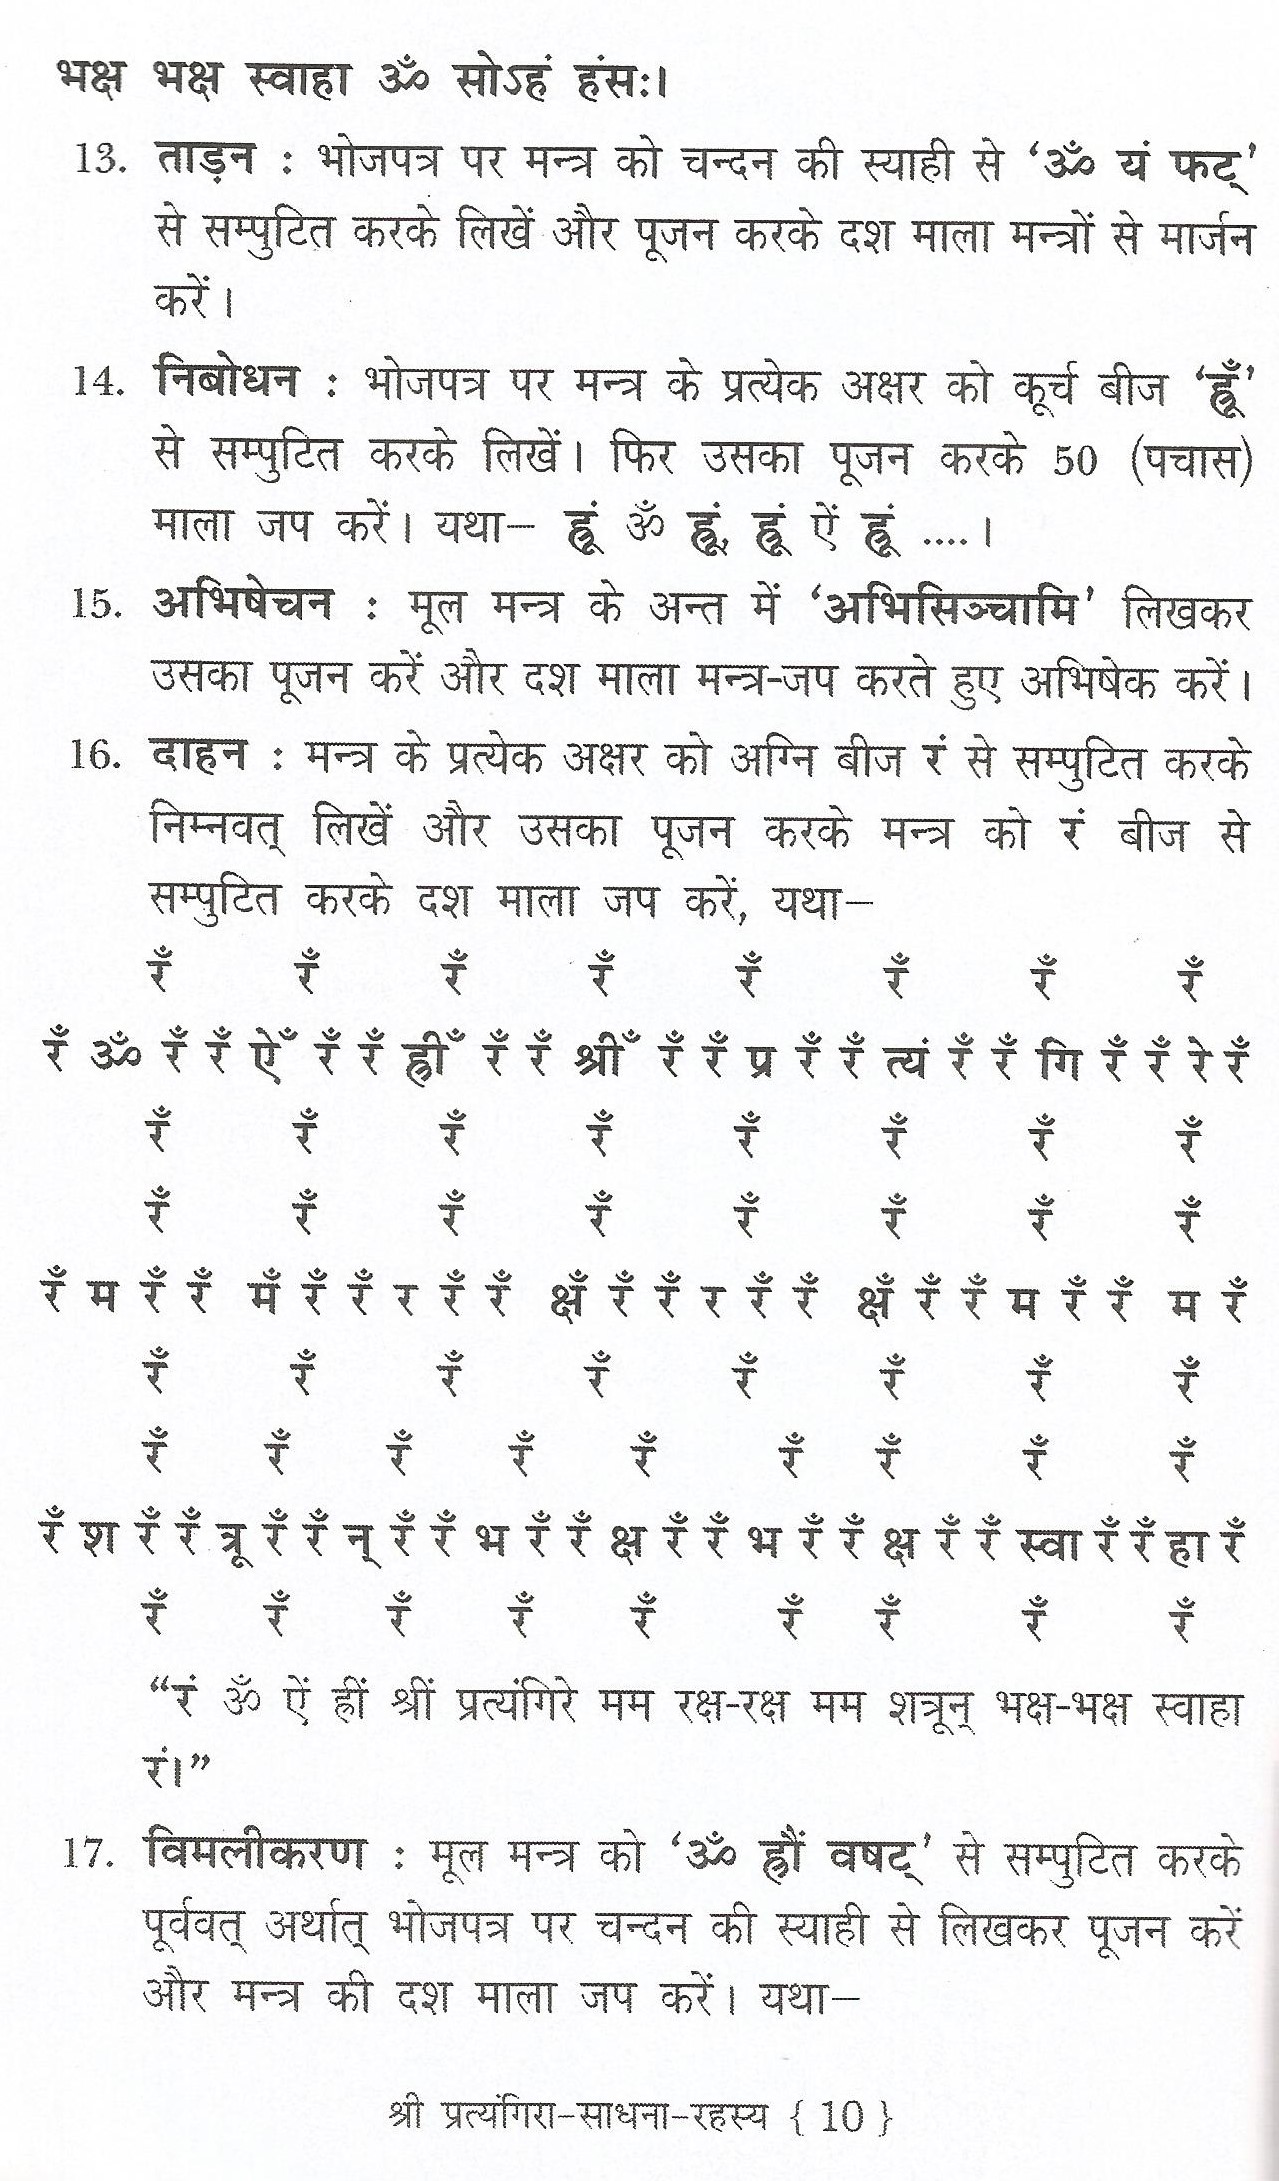 भक्ष भक्ष स्वाहा ॐ सोऽहं हंसः।
13. ताड़न : भोजपत्र पर मन्त्र को चन्दन की स्याही से ‘ॐ यं फट्’
से सम्पुटित करके लिखें और पूजन करके दश माला मन्त्रों से मार्जन
करें।
14. निबोधन : भोजपत्र पर मन्त्र के प्रत्येक अक्षर को कूर्च बीज ‘ह्रूँ’
से सम्पुटित करके लिखें। फिर उसका पूजन करके 50 (पचास)
माला जप करें। यथा– ह्रूं ॐ ह्रूं, ह्रूं ऐं ह्रूं ....।
15. अभिषेचन : मूल मन्त्र के अन्त में ‘अभिसिञ्चामि’ लिखकर
उसका पूजन करें और दश माला मन्त्र-जप करते हुए अभिषेक करें।
16. दाहन : मन्त्र के प्रत्येक अक्षर को अग्नि बीज रं से सम्पुटित करके
निम्नवत् लिखें और उसका पूजन करके मन्त्र को रं बीज से
सम्पुटित करके दश माला जप करें, यथा–
रँ रँ रँ रँ रँ रँ रँ रँ
रँ ॐ रँ रँ ऐँ रँ रँ ह्रीँ रँ रँ श्रीँ रँ रँ प्र रँ रँ त्यं रँ रँ गि रँ रँ रे रँ
रँ रँ रँ रँ रँ रँ रँ रँ
रँ रँ रँ रँ रँ रँ रँ रँ
रँ म रँ रँ मँ रँ रँ र रँ रँ क्षँ रँ रँ र रँ रँ क्षँ रँ रँ म रँ रँ म रँ
रँ रँ रँ रँ रँ रँ रँ रँ
रँ रँ रँ रँ रँ रँ रँ रँ रँ
रँ श रँ रँ त्रू रँ रँ न् रँ रँ भ रँ रँ क्ष रँ रँ भ रँ रँ क्ष रँ रँ स्वा रँ रँ हा रँ
रँ रँ रँ रँ रँ रँ रँ रँ रँ
“रं ॐ ऐं ह्रीं श्रीं प्रत्यंगिरे मम रक्ष-रक्ष मम शत्रून् भक्ष-भक्ष स्वाहा
रं।”
17. विमलीकरण : मूल मन्त्र को ‘ॐ ह्रौं वषट्’ से सम्पुटित करके
पूर्ववत् अर्थात् भोजपत्र पर चन्दन की स्याही से लिखकर पूजन करें
और मन्त्र की दश माला जप करें। यथा–
श्री प्रत्यंगिरा–साधना–रहस्य { 10 }